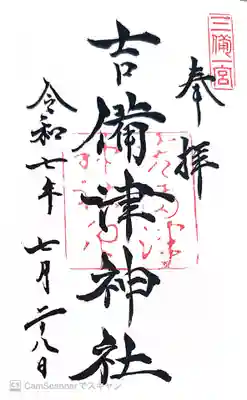 三備一宮
奉拝
吉備津神社
令和七年 七月二十八日
CS CamScannerでスキャン